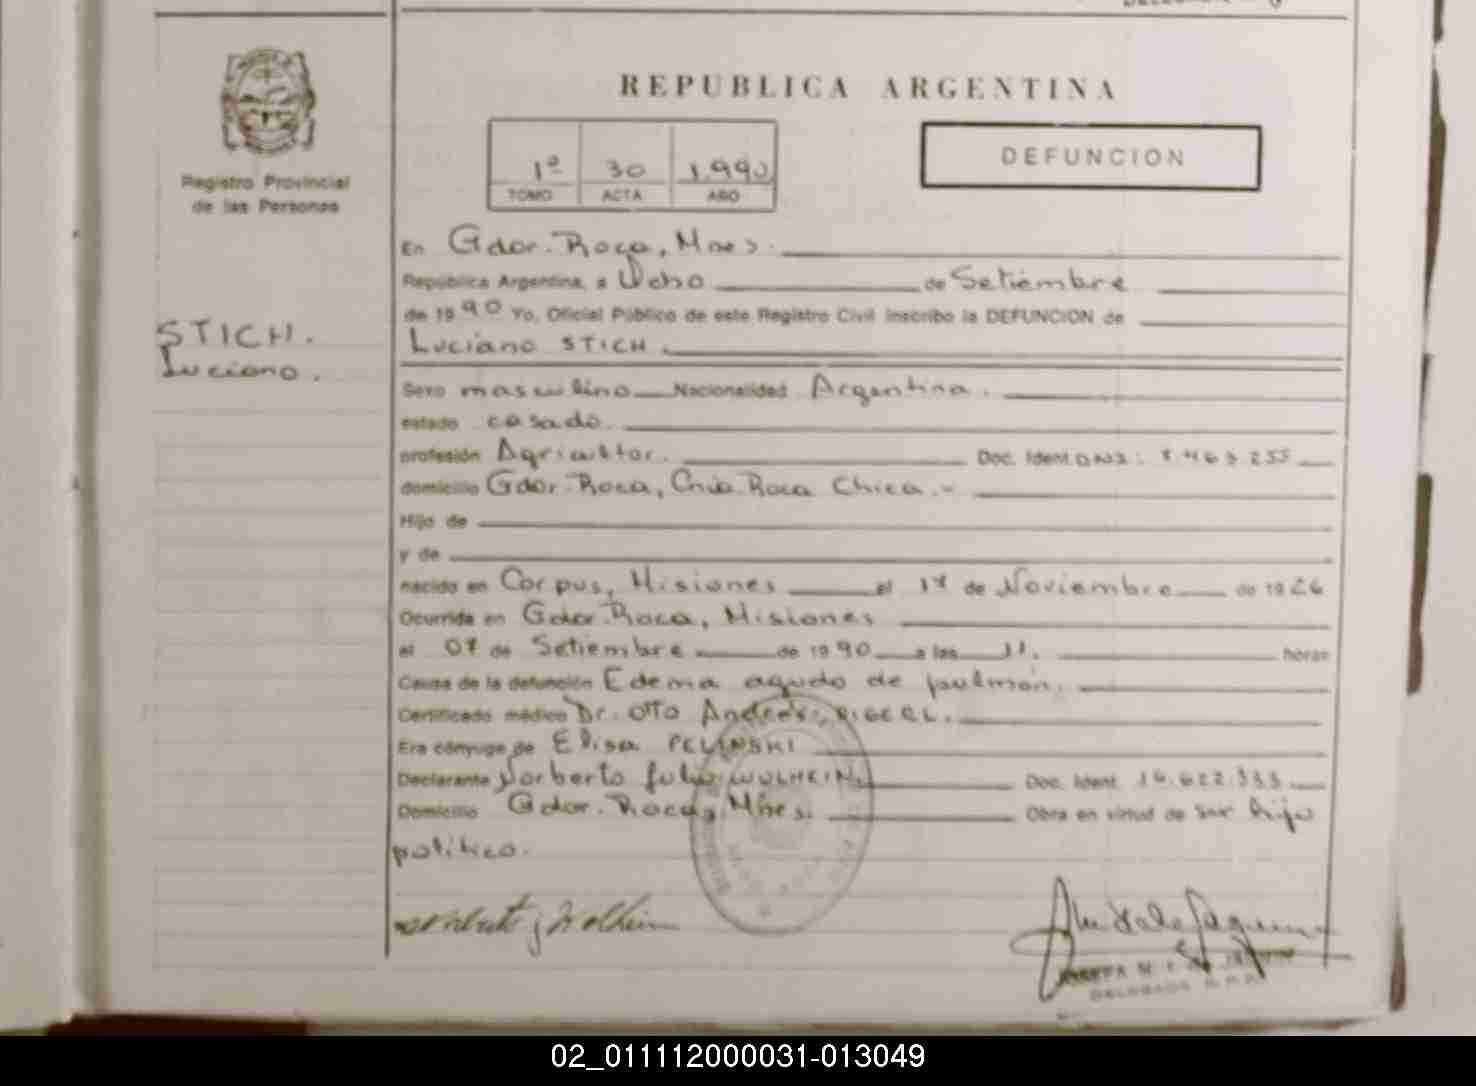 REPUBLICA ARGENTINA
1º 30 1.990
TOMO ACTA AÑO
DEFUNCION
Registro Provincial
de las Personas
STICH.
Luciano.
En Gdor. Roca, Mnes.
República Argentina, a Ocho de Setiembre
de 1990 Yo, Oficial Público de este Registro Civil inscribo la DEFUNCION de
Luciano STICH.
Sexo masculino Nacionalidad Argentina.
estado casado.
profesión Agricultor. Doc. Ident. DNI: 7.463.255
domicilio Gdor. Roca, Cnia. Roca Chica.-
Hijo de
y de
nacido en Corpus, Misiones el 17 de Noviembre de 1926
Ocurrida en Gdor. Roca, Misiones
el 07 de Setiembre de 1990 a las 11. horas
Causa de la defunción Edema agudo de pulmón.
Certificado médico Dr. Otto Andrés
Era cónyuge de Elisa PELINSKI
Declarante Norberto Julio WOLHEIN. Doc. Ident. 16.622.333
Domicilio Gdor. Roca, Mnes. Obra en virtud de ser hijo
político.
02_011112000031-013049